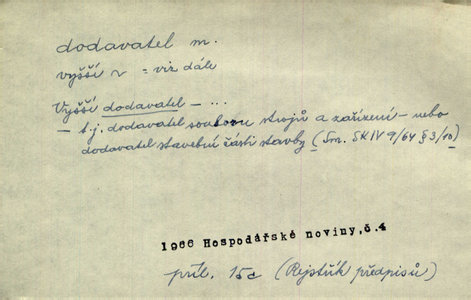 dodavatel m.
vyšší ~ = viz dále
Vyšší dodavatel – ...
– t.j. dodavatel souboru strojů a zařízení – nebo
dodavatel stavební části stavby (Sm. SKIV 9/64 § 3/
1966 Hospodářské noviny,č.4
příl. 15c (Rejstřík předpisů)